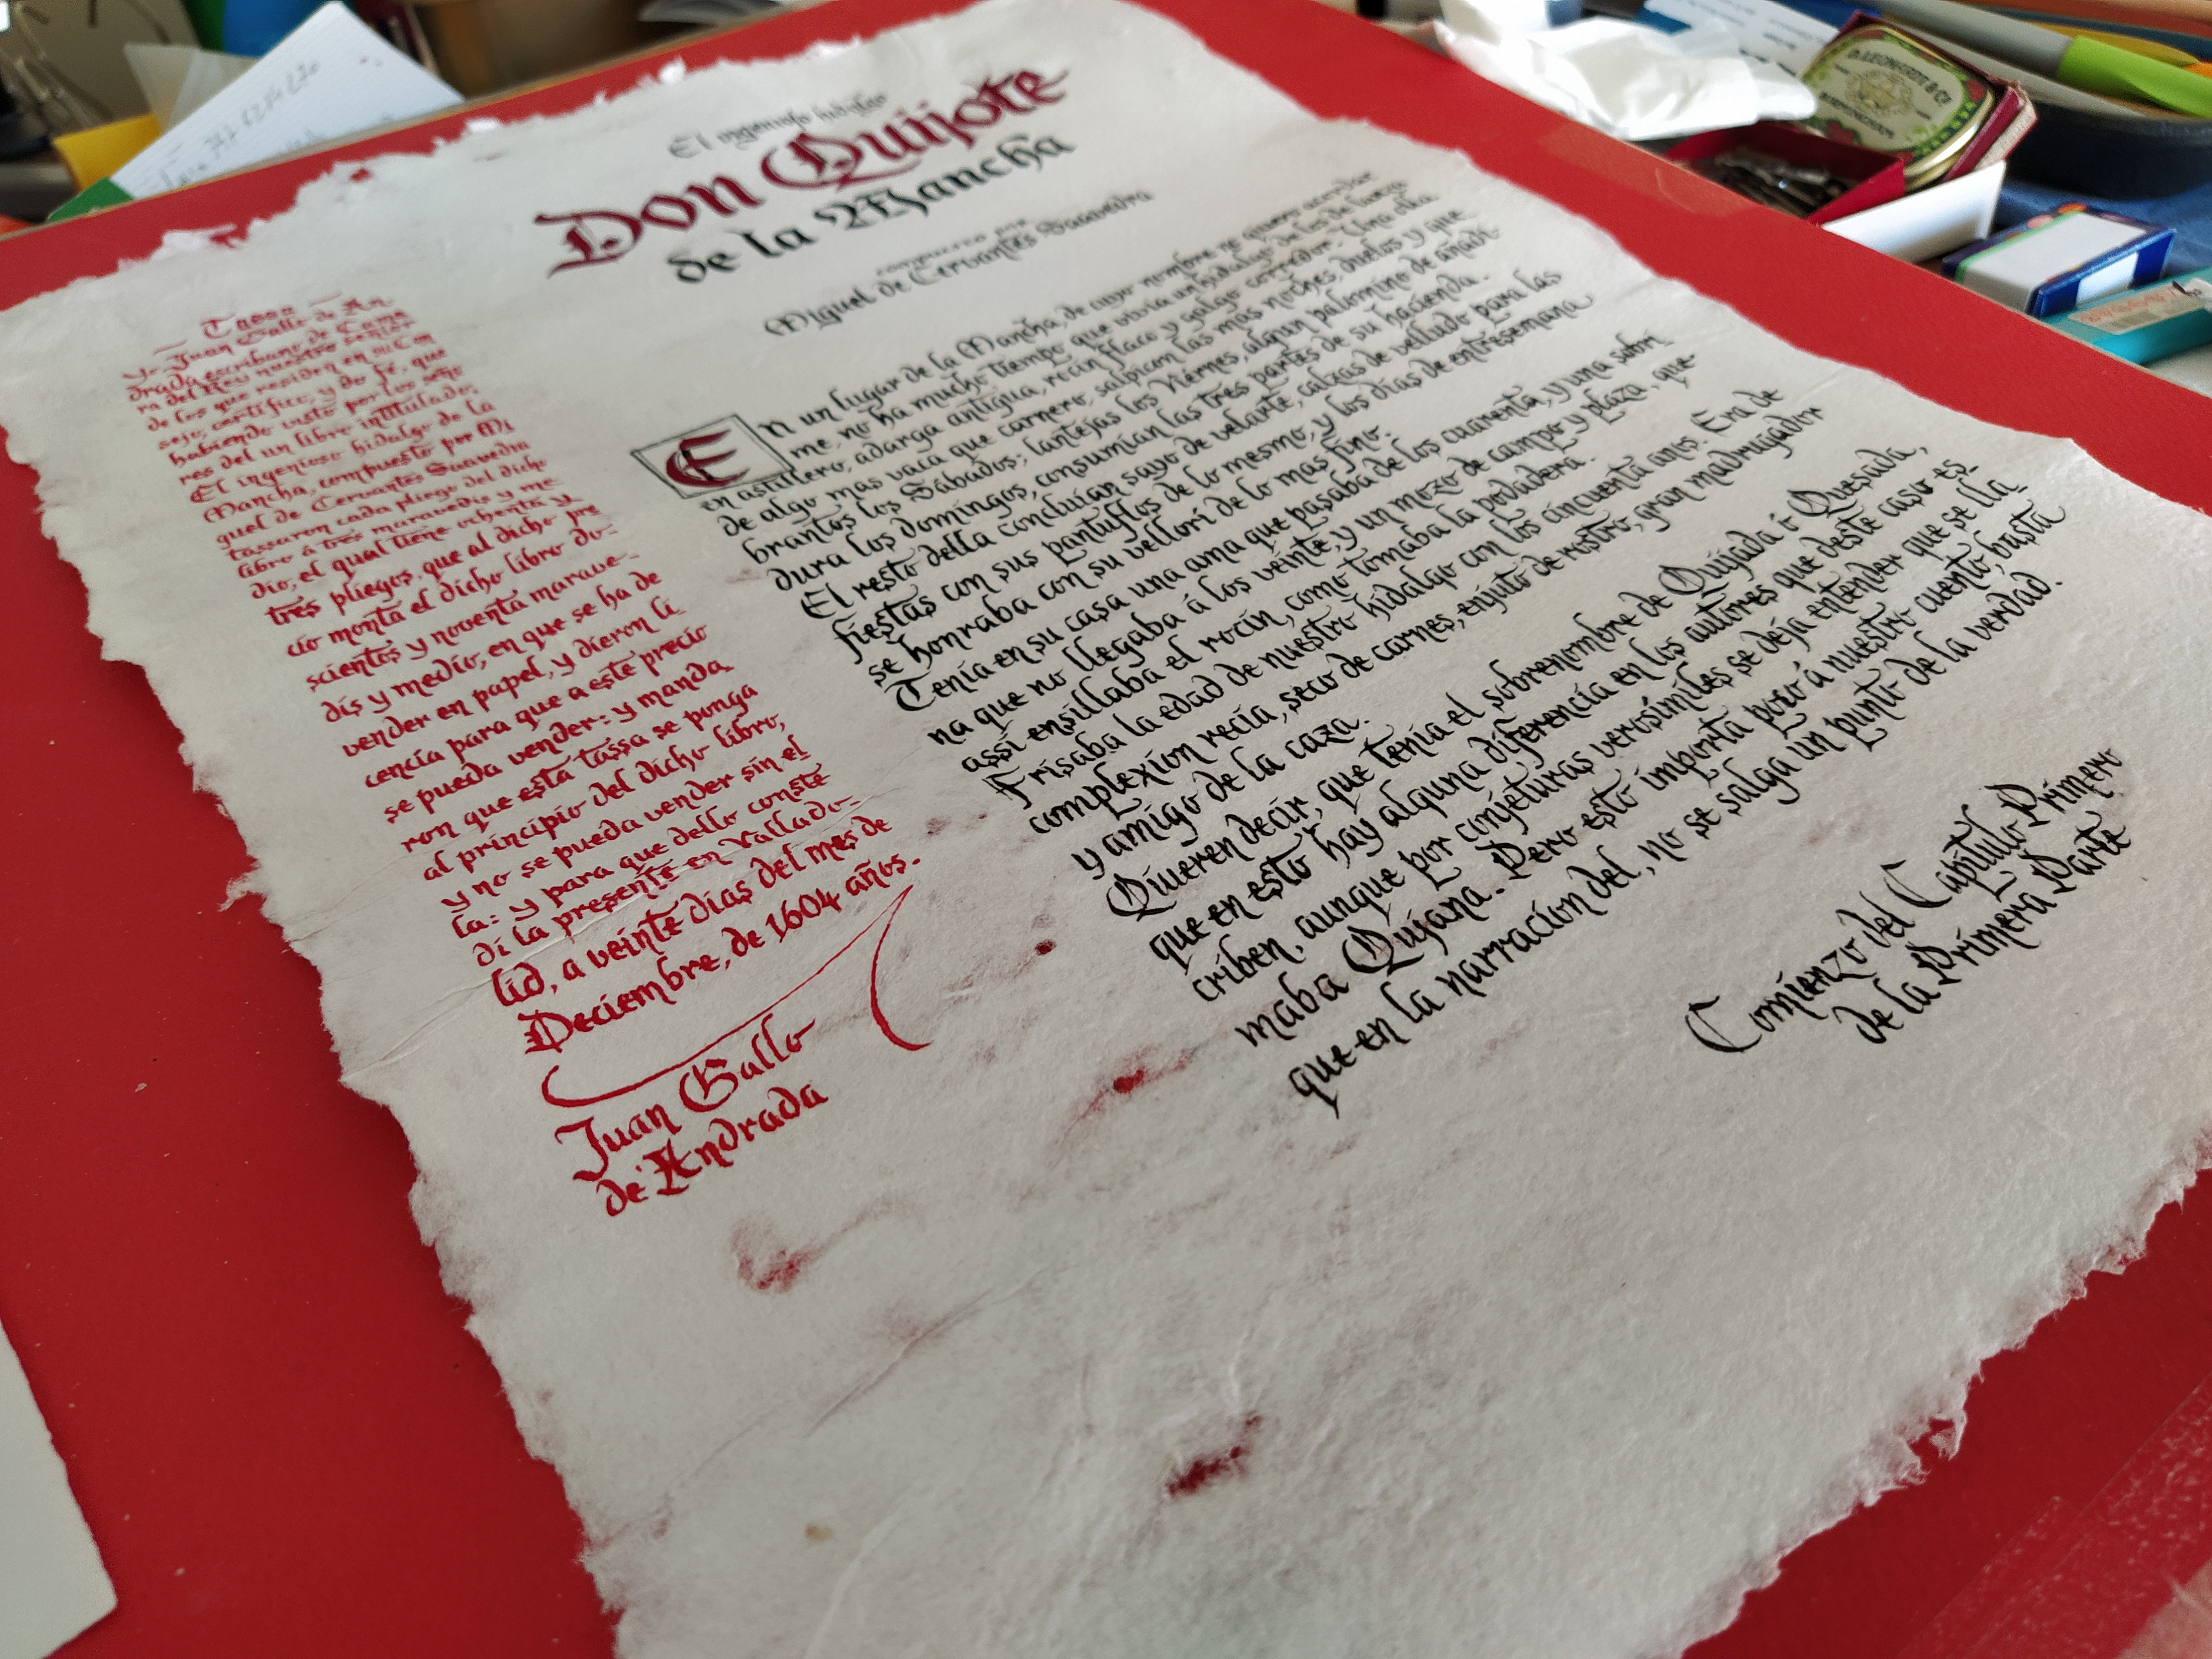 El ingenioso hidalgo
Don Quijote
de la Mancha
compuesto por
Miguel de Cervantes Saavedra
Tassa
Yo Juan Gallo de An
drada escribano de Cama
ra del Rey nuestro señor
de los que residen en su Con
sejo, certifico, y do fé, que
habiendo visto por los seño
res del un libro intitulado,
El ingenioso hidalgo de la
Mancha, compuesto por Mi
guel de Cervantes Saavedra
tassaron cada pliego del dicho
libro á tres maravedis y me
dio, el qual tiene ochenta y
tres pliegos, que al dicho pre
cio monta el dicho libro do-
scientos y noventa marave-
dis y medio, en que se ha de
vender en papel, y dieron li
cencia para que a este precio
se pueda vender: y manda
ron que esta tassa se ponga
al principio del dicho libro,
y no se pueda vender sin el
la: y para que dello conste
di la presente en Vallado-
lid, a veinte dias del mes de
Deciembre, de 1604 años.
Juan Gallo
de Andrada
En un lugar de la Mancha, de cuyo nombre no quiero acordar
me, no ha mucho tiempo que vivía un hidalgo de los de lanza
en astillero, adarga antigua, rocín flaco y galgo corredor. Una olla
de algo mas vaca que carnero, salpicon las mas noches, duelos y que
brantos los Sábados; lantejas los Viérnes, algun palomino de añadi-
dura los domingos, consumían las tres partes de su hacienda.
El resto della concluían sayo de velarte, calzas de velludo para las
fiestas con sus pantuflos de lo mesmo, y los días de entresemana
se honraba con su vellorí de lo mas fino.
Tenía en su casa una ama que pasaba de los cuarenta, y una sobri
na que no llegaba á los veinte, y un mozo de campo y plaza, que-
assi ensillaba el rocín, como tomaba la podadera.
Frisaba la edad de nuestro hidalgo con los cincuenta anos. Era de
complexion recia, seco de carnes, enjuto de rostro, gran madrugador
y amigo de la caza.
Quieren decir, que tenía el sobrenombre de Quijada ó Quesada,
que en esto hay alguna diferencia en los autores que deste caso es-
criben, aunque por conjeturas verosímiles se deja entender que se lla-
maba Quijana. Pero esto importa poco á nuestro cuento, basta
que en la narracion del, no se salga un punto de la verdad.
Comienzo del Capítulo Primero
de la Primera Parte